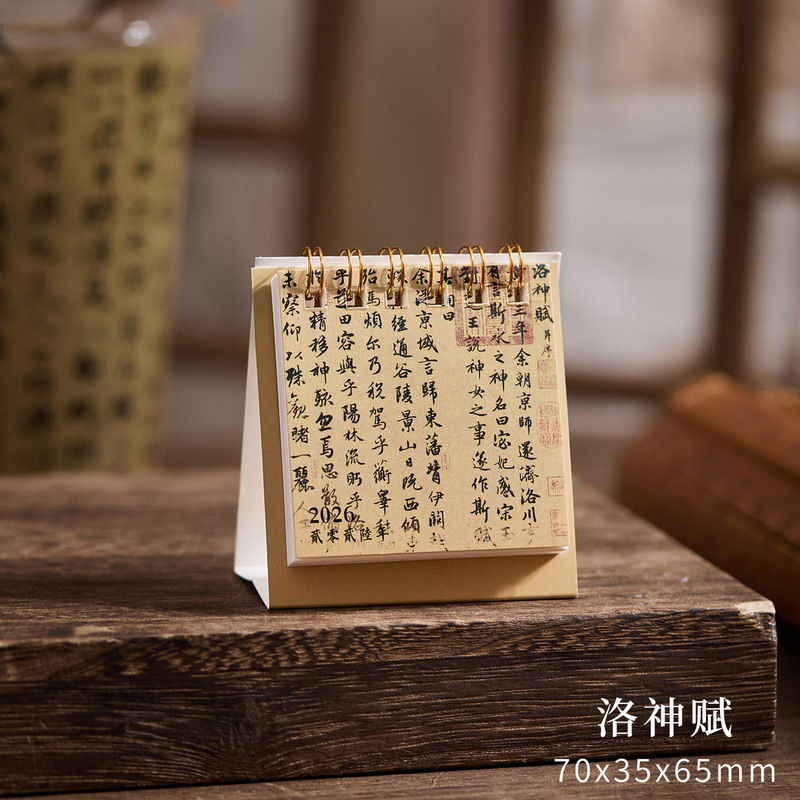 洛神賦 并序
三年余朝京師還濟洛川
有言斯水之神名曰宓妃感宋玉
對楚王說神女之事遂作斯賦
其詞曰
余從京城言歸東藩背伊闕
經通谷陵景山日既西傾
殆馬煩尔乃稅駕乎蘅皋秣
乎芝田容與乎陽林流眄乎洛
精移神駭忽焉思散
未察仰以殊觀睹一麗人
2026
貳零貳陸年
洛神赋
70x35x65mm